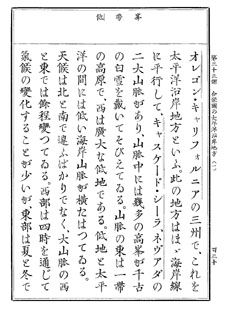 第二十三課 合衆國の太平洋沿岸地方(一)
百三十
峯 帶 低
オレゴン・キャリフォルニアの三州で、これを
太平洋沿岸地方といふ。此の地方はほゞ海岸線
に平行して、キャスケード・シーラ、ネヴァダの
二大山脈があり、山脈中には幾多の高峯が千古
の白雪を戴いてそびえてゐる。山脈の東は一帶
の高原で、西は廣大な低地である。低地と太平
洋の間には低い海岸山脈が横たはつてゐる。
天候は北と南で違ふばかりでなく、大山脈の西
と東では餘程變つてゐる。西部は四時を通じて
氣候の變化することが少いが、東部は夏と冬で